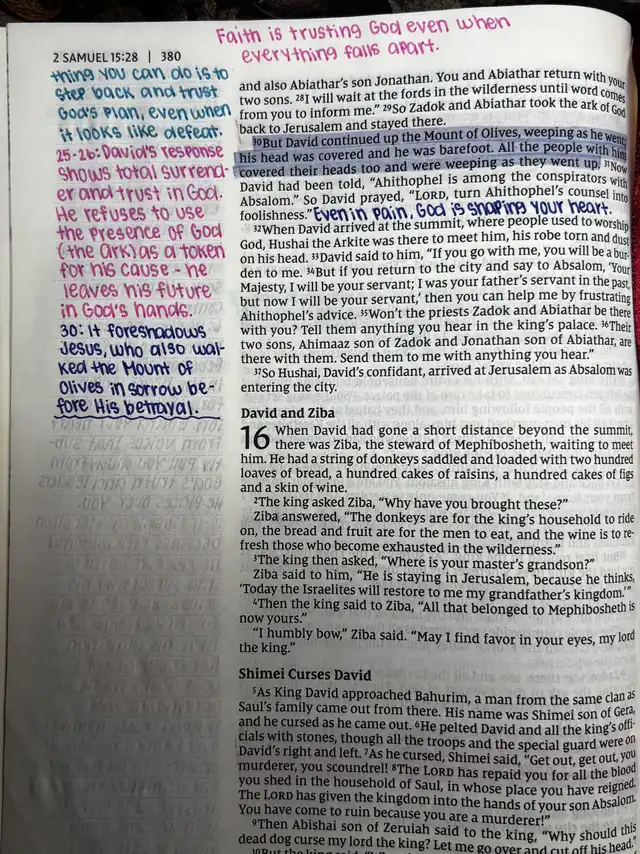 Faith is trusting God even when
everything falls apart.
2 SAMUEL 15:28 | 380
thing you can do is to
step back and trust
God's plan, even when
it looks like defeat.
25-26: David's response
shows total surrend-
er and trust in God.
He refuses to use
the presence of God
(the ark) as a token
for his cause - he
leaves his future
in God's hands.
30: It foreshadows
Jesus, who also wal-
ked the Mount of
Olives in sorrow be-
fore His betrayal.
and also Abiathar's son Jonathan. You and Abiathar return with your
two sons. 28I will wait at the fords in the wilderness until word comes
from you to inform me." 29So Zadok and Abiathar took the ark of God
back to Jerusalem and stayed there.
30But David continued up the Mount of Olives, weeping as he went;
his head was covered and he was barefoot. All the people with him
covered their heads too and were weeping as they went up. 31Now
David had been told, "Ahithophel is among the conspirators with
Absalom." So David prayed, "LORD, turn Ahithophel's counsel into
foolishness." Even in pain, God is shaping your heart.
32When David arrived at the summit, where people used to worship
God, Hushai the Arkite was there to meet him, his robe torn and dust
on his head. 33David said to him, "If you go with me, you will be a bur-
den to me. 34But if you return to the city and say to Absalom, 'Your
Majesty, I will be your servant; I was your father's servant in the past,
but now I will be your servant,' then you can help me by frustrating
Ahithophel's advice. 35Won't the priests Zadok and Abiathar be there
with you? Tell them anything you hear in the king's palace. 36Their
two sons, Ahimaaz son of Zadok and Jonathan son of Abiathar, are
there with them. Send them to me with anything you hear."
37So Hushai, David's confidant, arrived at Jerusalem as Absalom was
entering the city.
David and Ziba
16 When David had gone a short distance beyond the summit,
there was Ziba, the steward of Mephibosheth, waiting to meet
him. He had a string of donkeys saddled and loaded with two hundred
loaves of bread, a hundred cakes of raisins, a hundred cakes of figs
and a skin of wine.
2The king asked Ziba, "Why have you brought these?"
Ziba answered, "The donkeys are for the king's household to ride
on, the bread and fruit are for the men to eat, and the wine is to re-
fresh those who become exhausted in the wilderness."
3The king then asked, "Where is your master's grandson?"
Ziba said to him, "He is staying in Jerusalem, because he thinks,
'Today the Israelites will restore to me my grandfather's kingdom.'"
4Then the king said to Ziba, "All that belonged to Mephibosheth is
now yours."
"I humbly bow," Ziba said. "May I find favor in your eyes, my lord
the king."
Shimei Curses David
5As King David approached Bahurim, a man from the same clan as
Saul's family came out from there. His name was Shimei son of Gera,
and he cursed as he came out. 6He pelted David and all the king's offi-
cials with stones, though all the troops and the special guard were on
David's right and left. 7As he cursed, Shimei said, "Get out, get out, you
murderer, you scoundrel! 8The LORD has repaid you for all the blood
you shed in the household of Saul, in whose place you have reigned.
The LORD has given the kingdom into the hands of your son Absalom.
You have come to ruin because you are a murderer!"
9Then Abishai son of Zeruiah said to the king, "Why should this
dead dog curse my lord the king? Let me go over and cut off his head."
10But the king said,